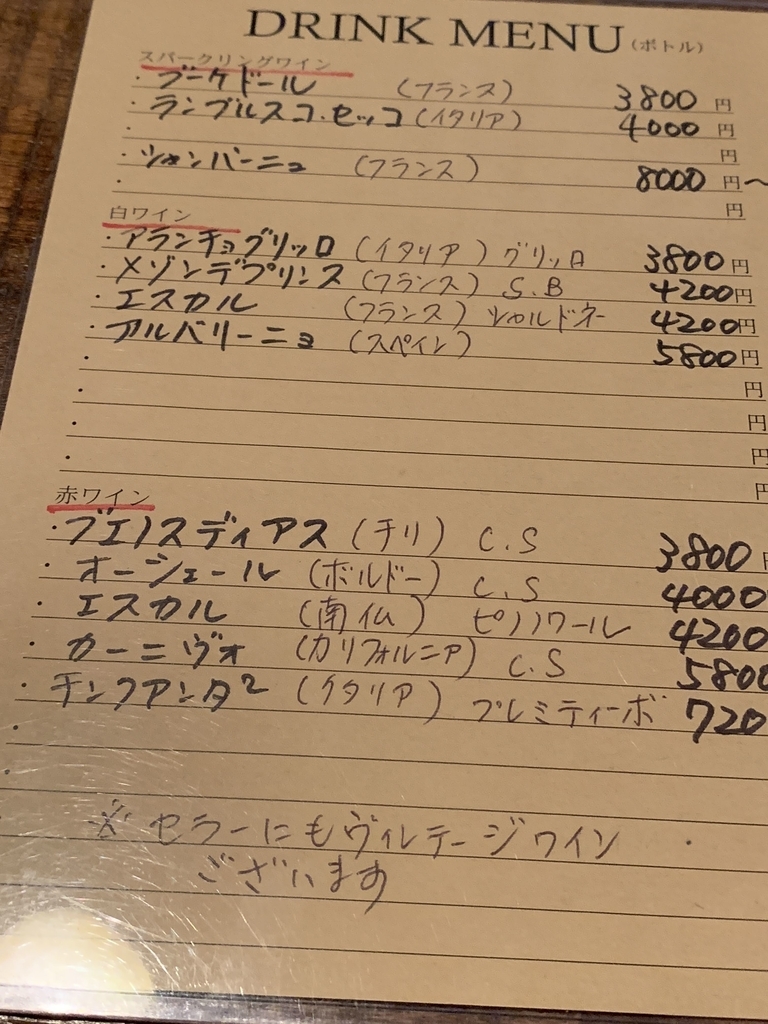 DRINK MENU (ボトル)
スパークリングワイン
・ブーケドール (フランス) 3800 円
・ランブルスコ・セッコ (イタリア) 4000 円
・ 円
・シャンパーニュ (フランス) 8000 円〜
・ 円
白ワイン
・アランチョグリッロ (イタリア) グリッロ 3800 円
・メゾンデプリンス (フランス) S.B 4200 円
・エスカル (フランス) シャルドネー 4200 円
・アルバリーニョ (スペイン) 5800 円
・ 円
・ 円
・ 円
・ 円
赤ワイン
・ブエノスディアス (チリ) C.S 3800 円
・オーシェール (ボルドー) C.S 4000
・エスカル (南仏) ピノノワール 4200
・カーニヴォ (カリフォルニア) C.S 5800
・チンクアンタ2 (イタリア) プレミティーボ 720
・
・
※セラーにもヴィルテージワイン
ございます